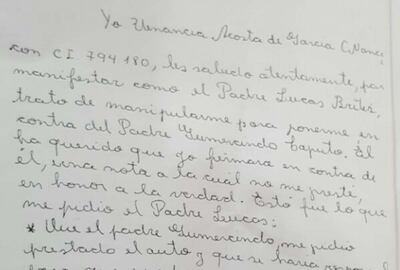 Yo Venancia Acosta de Garcia C, Nance
con CI 794180, les saludo atentamente, para
manifestar como el Padre Lucas Britez,
trato de manipularme para ponerme en
contra del Padre Gumercindo Caputo. El
ha querido que yo firmara en contra de
él, una nota a la cual no me presté,
en honor a la verdad. Esto fue lo que
me pidio el Padre Lucas:
* Que el padre Gumercindo, me pidio
prestado el auto y que se haria